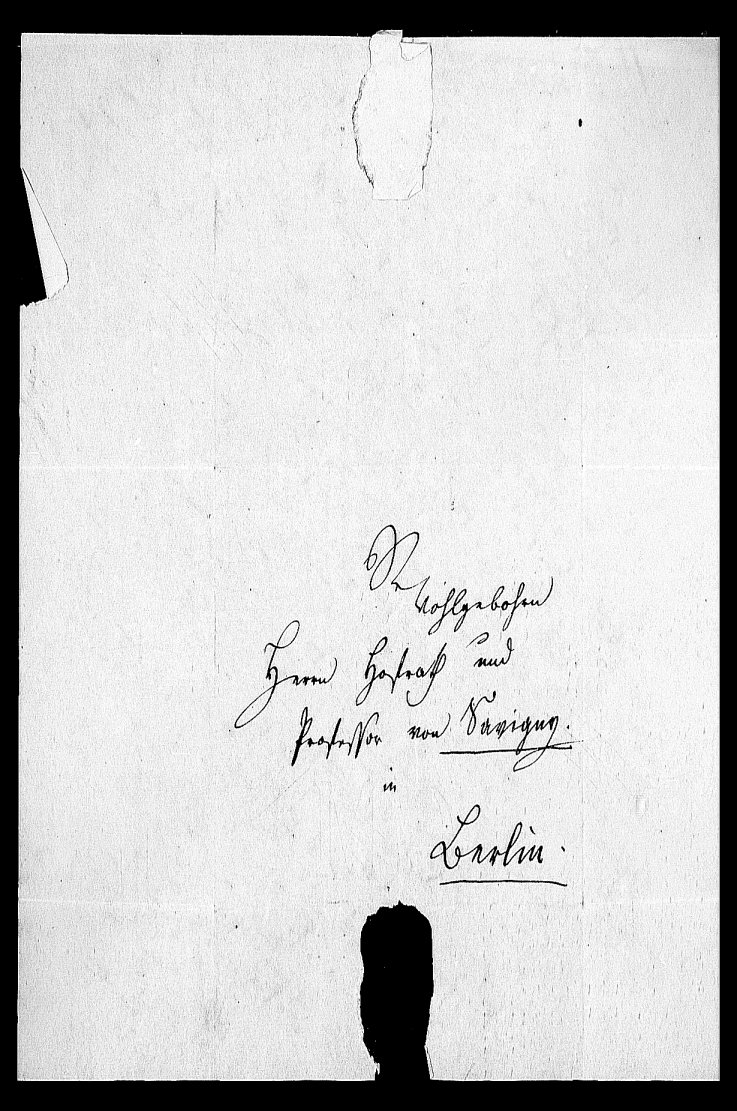 Sr
Wohlgebohren
Herrn Hofrath und
Professor von Savigny.
in
Berlin.